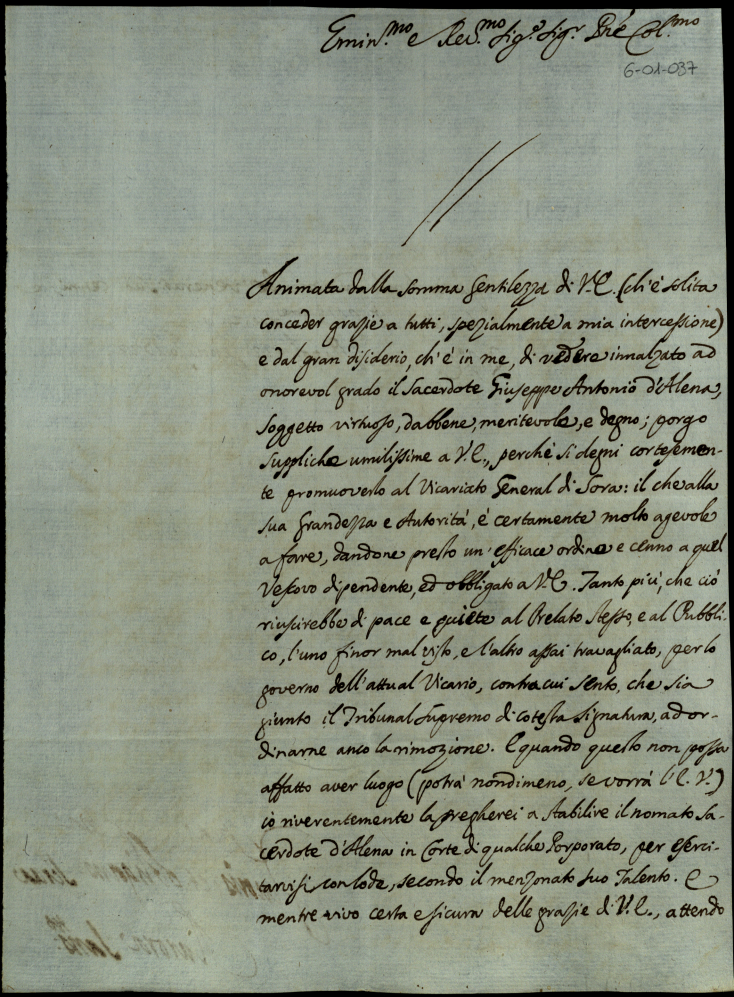 Emin.mo e Rev.mo Sig.r Sig.r Pne Col.mo
6-01-037
Animata dalla somma Gentilezza di V.E. (ch'è solita
conceder grazie a tutti, spezialmente a mia intercessione)
e dal gran disiderio, ch'è in me, di vedere innalzato ad
onorevol grado il Sacerdote Giuseppe Antonio d'Alena,
soggetto virtuoso, dabbene, meritevole, e degno; porgo
suppliche umilissime a V.E., perchè si degni cortesemen-
te promuoverlo al Vicariato General di Sora: il che alla
sua Grandezza e Autorità, è certamente molto agevole
a fare, dandone presto un'efficace ordine e cenno a quel
Vescovo dipendente, ed obbligato a V.E. Tanto più, che ciò
riuscirebbe di pace e quiete al Prelato stesso, e al Pubbli-
co, l'uno finor mal visto, e l'altro assai travagliato, per lo
governo dell'attual Vicario, contra cui sento, che sia
giunto il Tribunal supremo di cotesta Signatura, ad or-
dinarne anco la rimozione. E quando questo non possa
affatto aver luogo (potrà nondimeno, se vorrà l'E.V.)
io riverentemente la pregherei a stabilire il nomato Sa-
cerdote d'Alena in Corte di qualche Porporato, per eserci-
tarvisi con lode, secondo il menzonato suo Talento. E
mentre vivo certa e sicura delle grazie di V.E., attendo